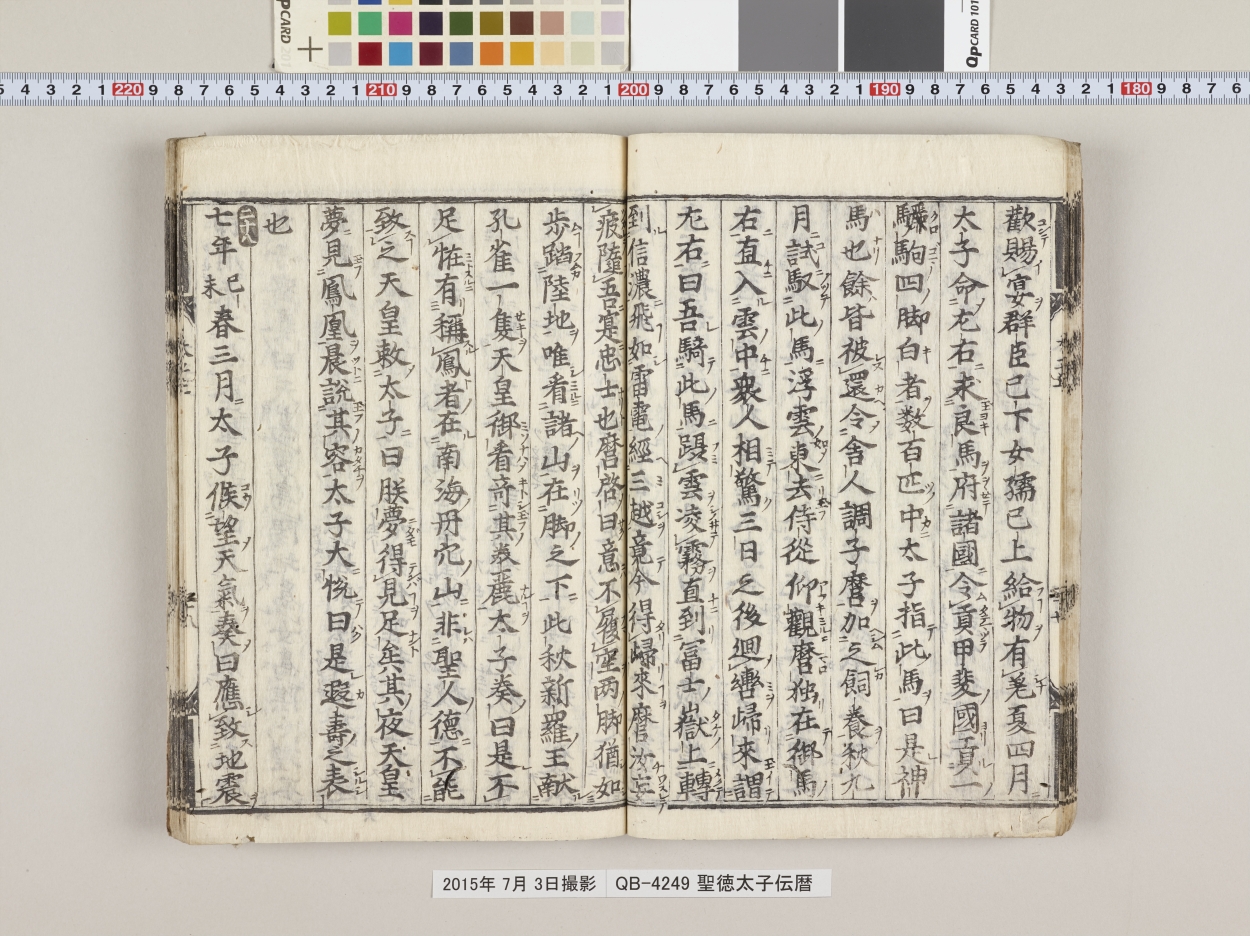 歡賜宴群臣已下女孺已上給物有差夏四月
太子命左右求良馬府諸國令貢甲斐國貢一
驪駒四脚白者数百匹中太子指此馬曰是神
馬也餘皆被還令舍人調子麿加之飼養秋九
月試馭此馬浮雲東去侍從仰觀麿独在御馬
右直入雲中衆人相驚三日之後廻轡歸來謂
左右曰吾騎此馬躡雲凌霧直到冨士嶽上轉
到信濃飛如雷電經三越竟今得歸來麿汝忘
疲隨吾寔忠士也麿啓曰意不履空两脚猶如
歩蹈陸地唯看諸山在脚之下此秋新羅王献
孔雀一隻天皇御看奇其美麗太子奏曰是不
足恠有稱鳳者在南海丹穴山非聖人德不能
致之天皇敕太子曰朕夢得見足矣其夜天皇
夢見鳳凰晨説其容太子大悦曰是遐壽之表
也
二十八
七年己未春三月太子候望天氣奏曰應致地震
2015年 7月 3日撮影 QB-4249 聖徳太子伝暦